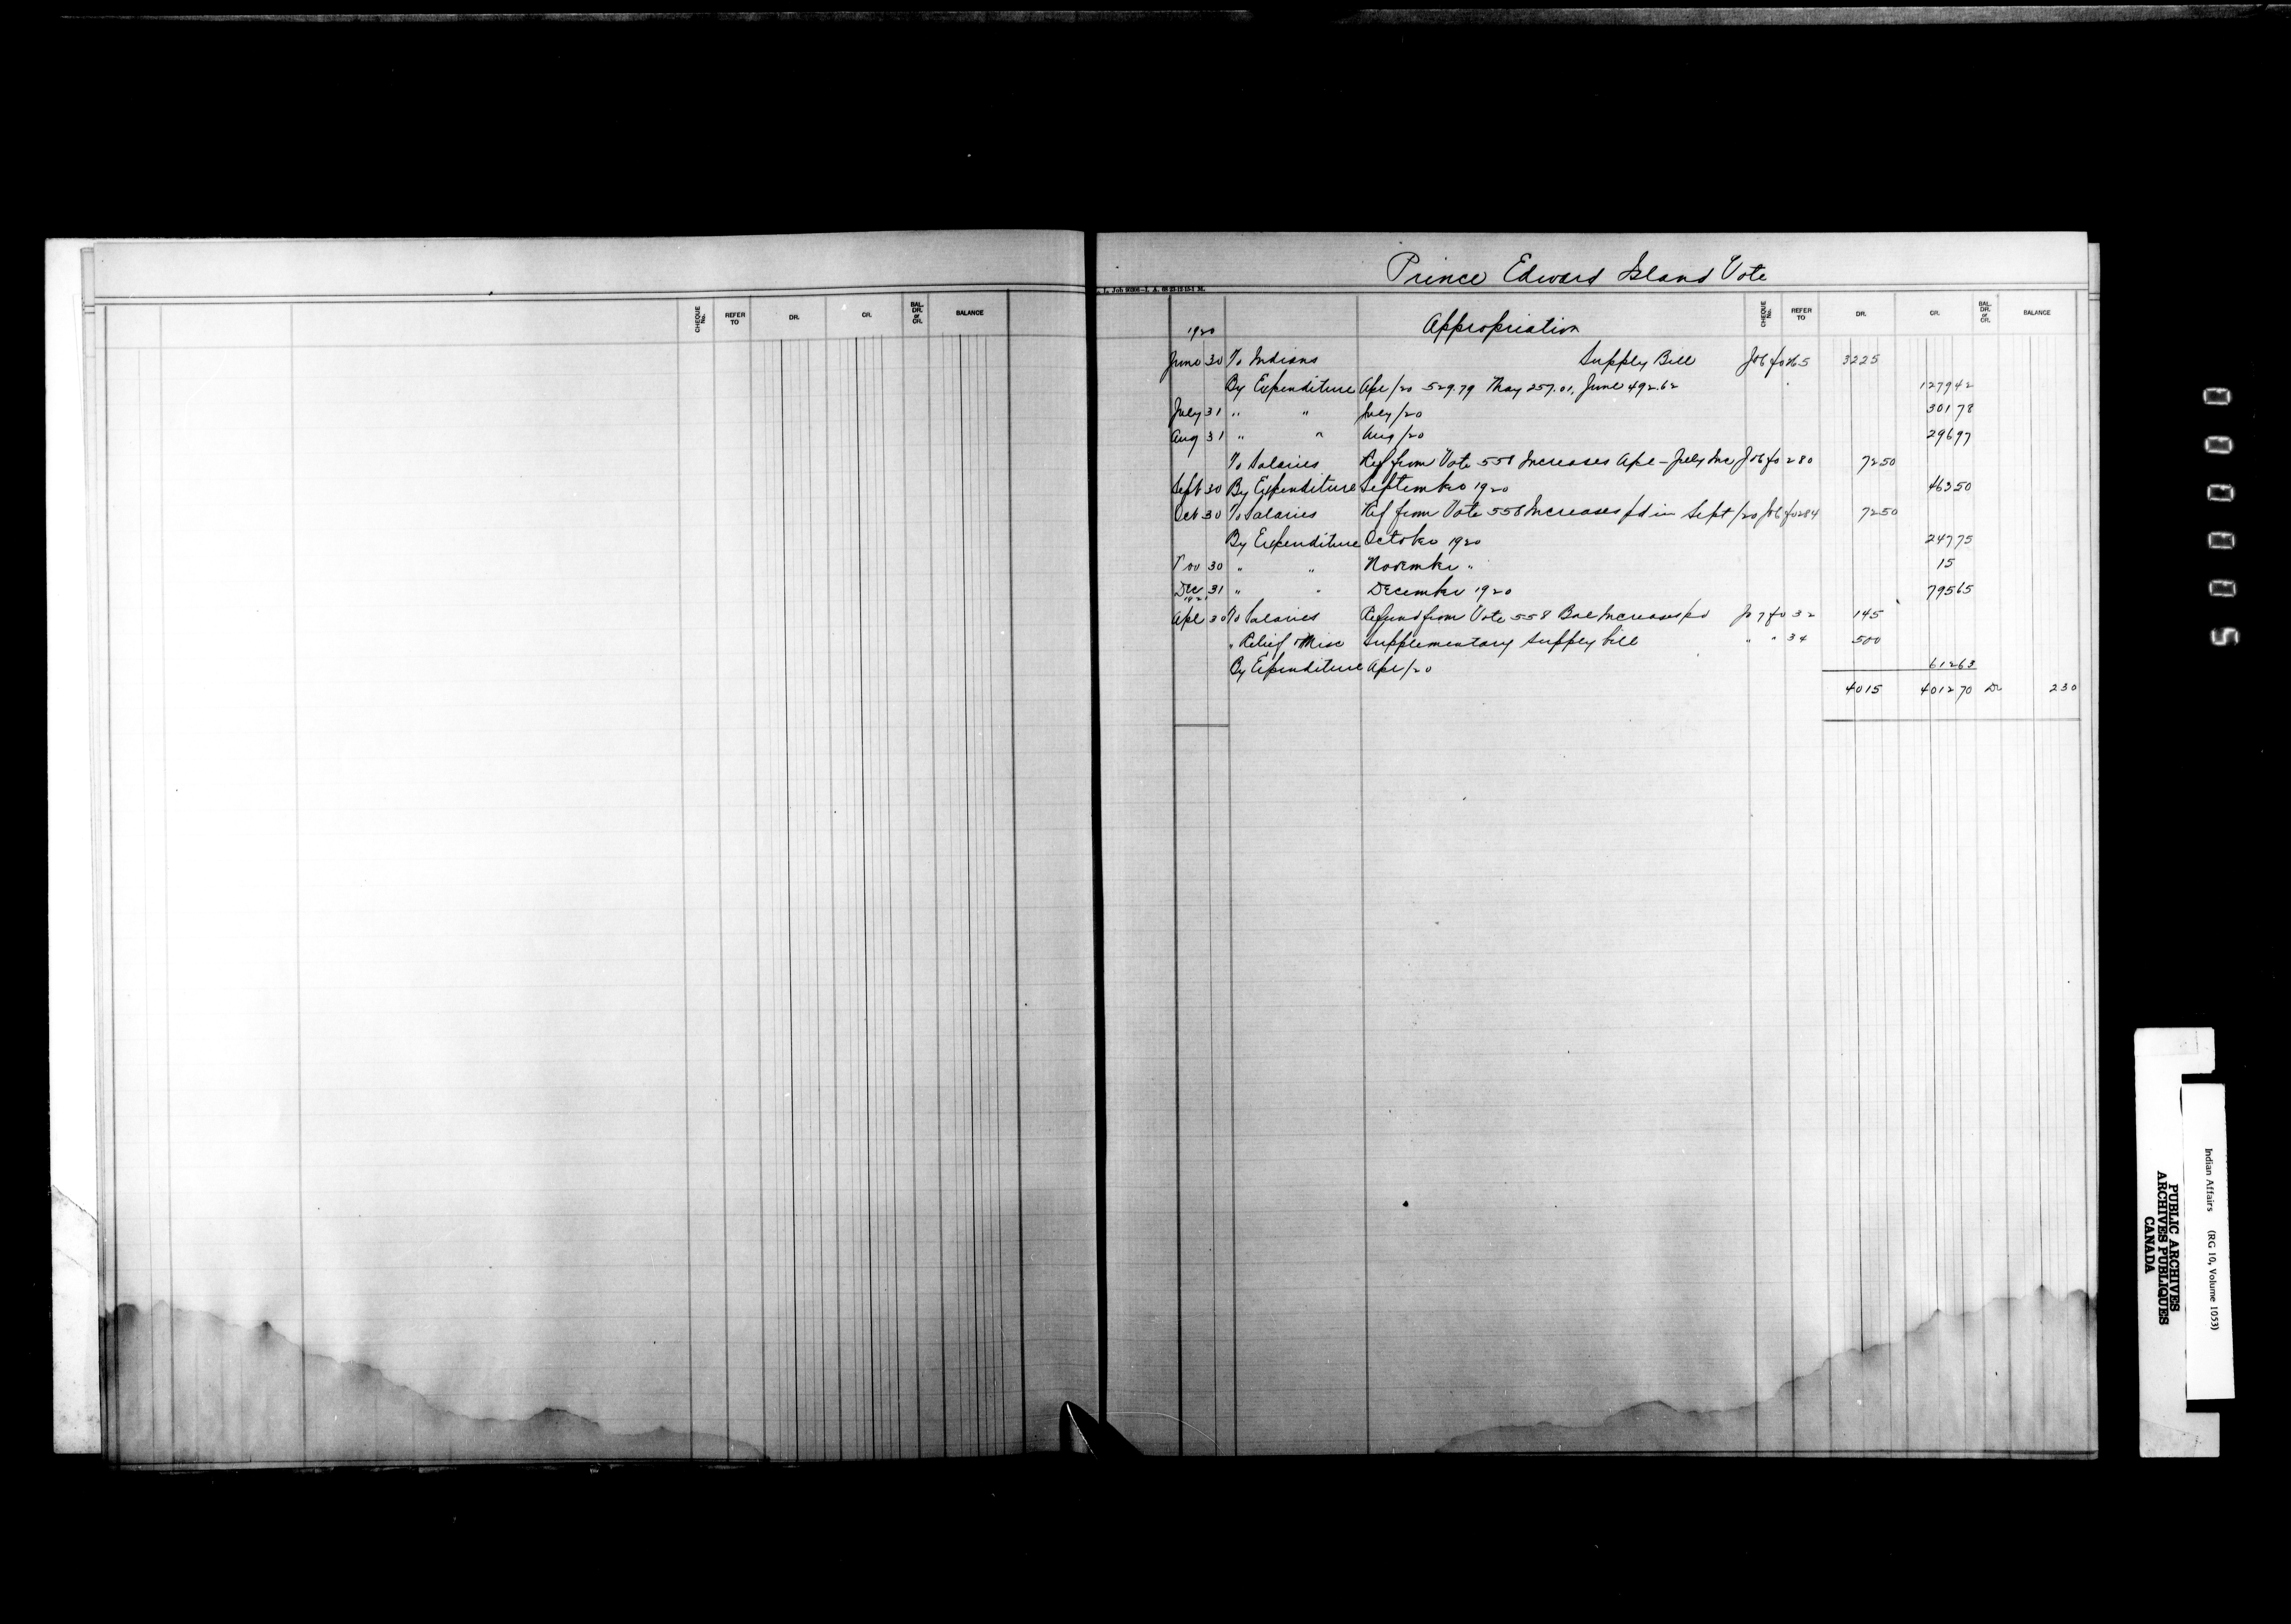 Prince Edward Island Vote
CHEQUE No. REFER TO DR. CR. BAL. DR. or CR. BALANCE
1920 Appropriation CHEQUE No. REFER TO DR. CR. BAL. DR. or CR. BALANCE
June 30 To Indians Supply Bill Jo 6 fo 265 3225
By Expenditure Apr/20 529.79 May 257.01, June 492.62 1279 42
July 31 " " July/20 301 78
Aug 31 " " Aug/20 296 97
To Salaries Ref from Vote 558 Increases Apl - July Inc Jo 6 fo 280 72 50
Sept 30 By Expenditure September 1920 463 50
Oct 30 To Salaries Ref from Vote 558 Increases pd in Sept/20 Jo 6 fo 284 72 50
By Expenditure October 1920 247 75
Nov 30 " " November " 15
Dec 31 " " December 1920 795 65
1921
Apl 30 To Salaries Refund from Vote 558 Bal Increases pd Jo 7 fo 32 145
" Relief & Misc Supplementary Supply bill " " 34 500
By Expenditure Apr/20 612 63
4015 4012 70 Dr 2 30
5 0 0 0 0 0
Indian Affairs (RG 10, Volume 1053)
PUBLIC ARCHIVES
ARCHIVES PUBLIQUES
CANADA